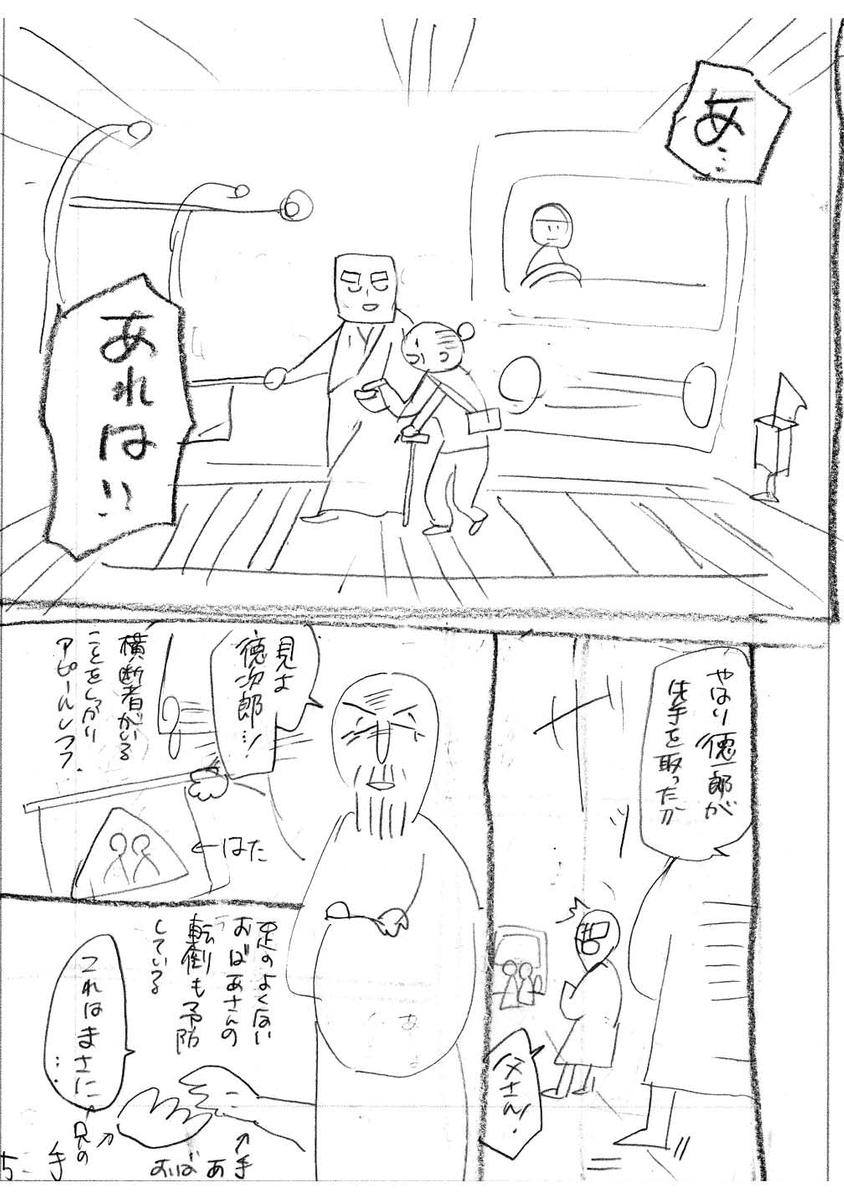 あ…
あれは!!
やはり徳一郎が
先手を取ったか
父さん!
見よ
徳次郎…!
横断者がいる
ことをしっかり
アピールしつつ、
←はた
足のよくない
おばあさんの
転倒も予防
している
これはまさに
…
↑兄の
手
↑手
おばあ